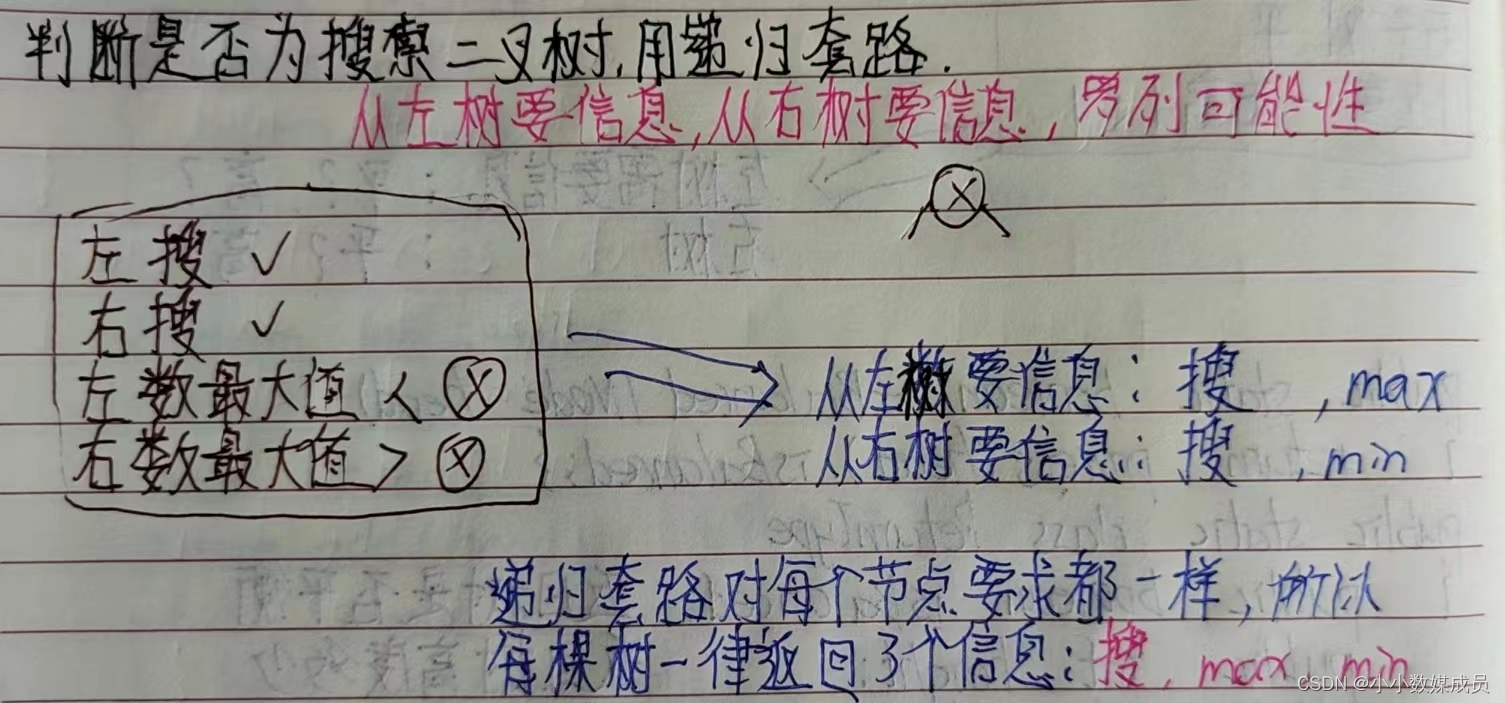 判断是否为搜索二叉树,用递归套路.
从左树要信息,从右树要信息,罗列可能性
X
左搜 ✓
右搜 ✓
左数最大值 < X
右数最大值 > X
从左树要信息: 搜 , max
从右树要信息: 搜 , min
递归套路对每个节点要求都一样,所以
每棵树一律返回3个信息:搜, max, min
CSDN @小小数媒成员